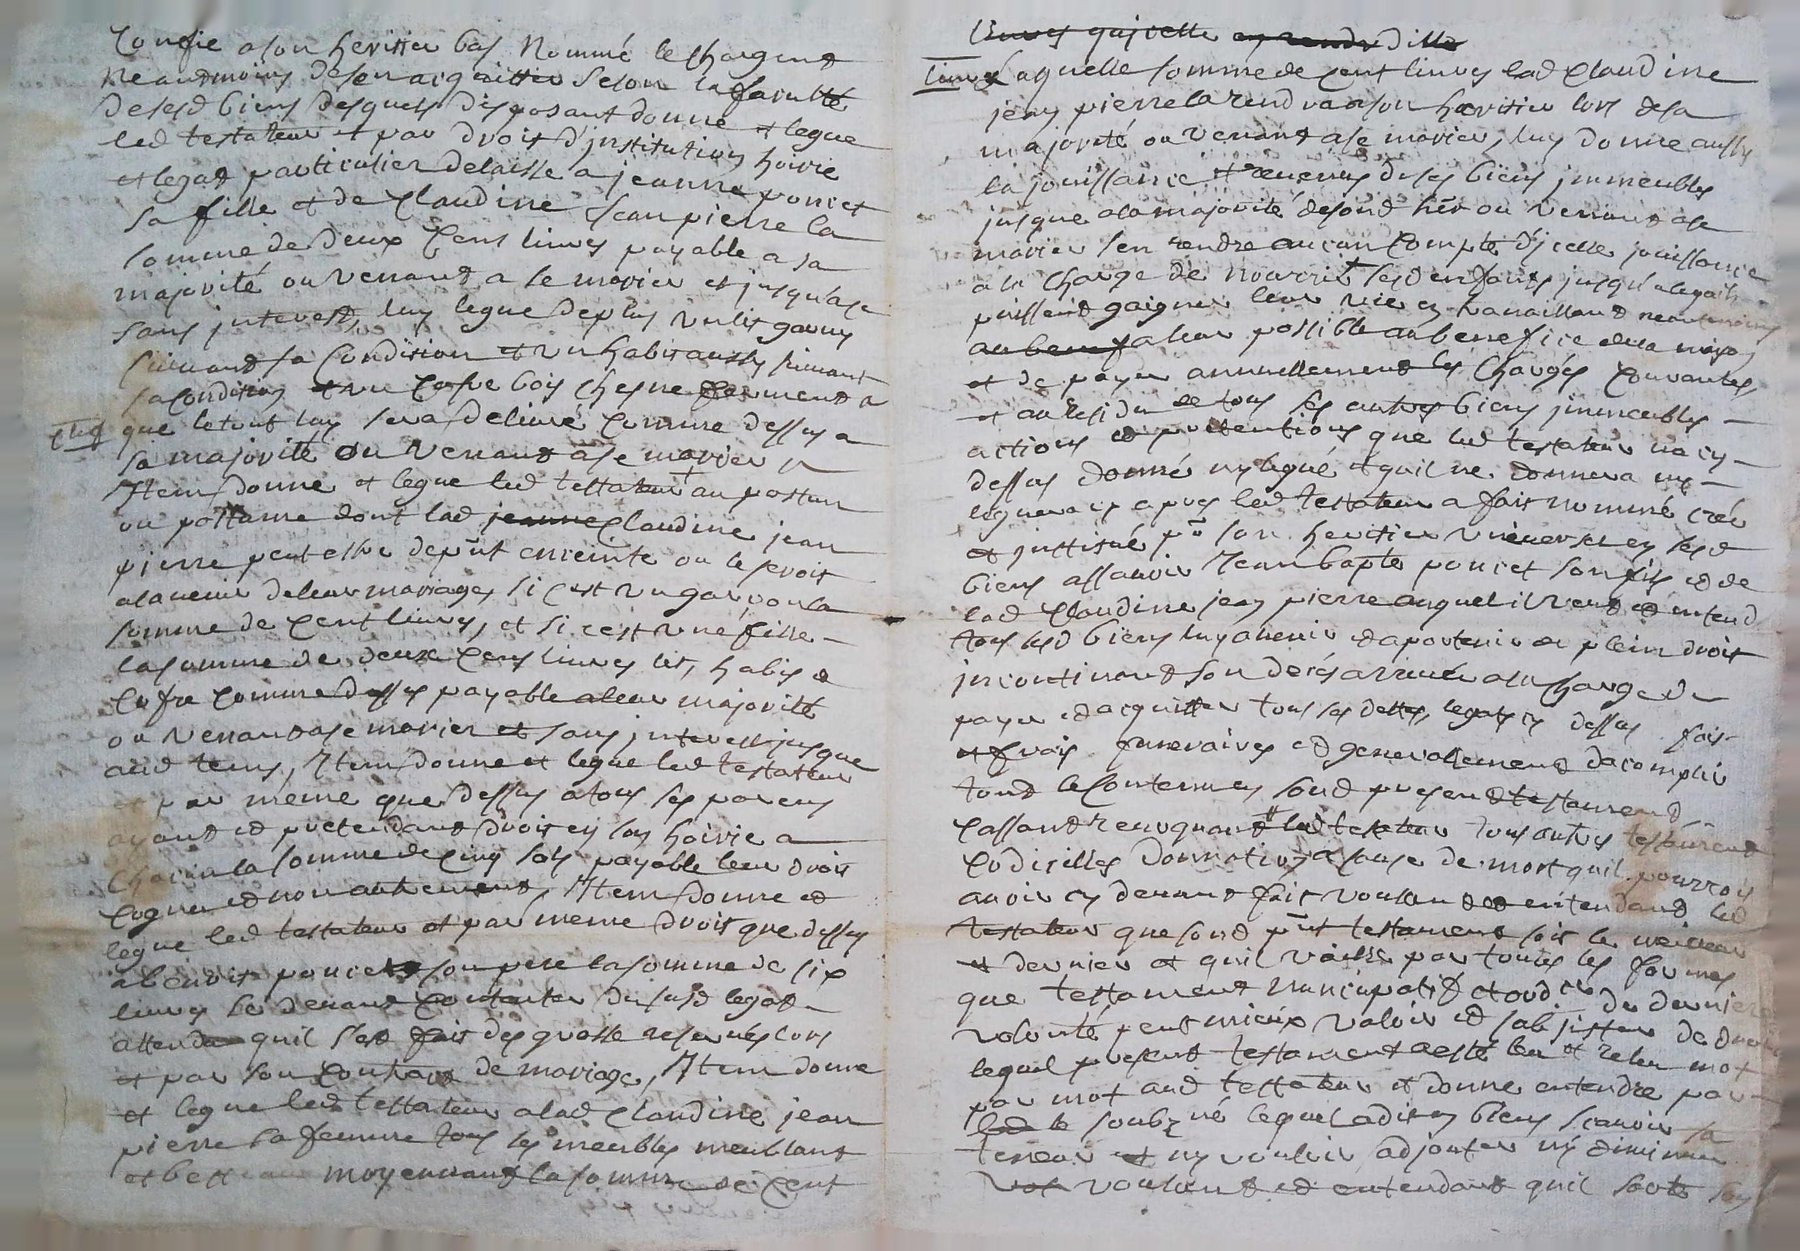 confie a son heritier bas nommé le chargeant
neantmoins de son acquitter selon la faculté
de sesd biens desquels disposant donne et legue
led testateur et par droit d'institution hoirie
et legat particulier delaisse a jeanne poncet
sa fille et de Claudine jean pierre la
somme de deux cens livres payable a sa
majorité ou venant a se marier et jusqu'a ce
sans interest, luy legue de plus un lit garny
suivant sa condition et un habit aussy suivant
sa condition et un cofre bois chesne fermant a
clef que le tout luy sera delivré comme dessus a
sa majorité ou venant a se marier
Item donne et legue led testateur au postum
ou postume dont lad jeanne Claudine jean
pierre peut estre depnt enceinte ou le seroit
a l'avenir de leur mariage, si c'est un garçon la
somme de cent livres, et si c'est une fille
la somme de deux cens livres lit, habit et
cofre comme dessus payable a leur majorité
ou venant a se marier et sans interest jusque
aud tems, Item donne et legue led testateur
et par même que dessus a tous ses parens
ayant et pretendant droit en son hoirie a
chacun la somme de cinq sols payable leur droit
cognu et non autrement, Item donne et
legue led testateur et par meme droit que dessus
a benoit poncet son pere la somme de six
livres se devant contenter du susd legat
attendu quil s'est fait des grosse reserves lors
et par son contract de mariage, Item donne
et legue led testateur a lad Claudine jean
pierre sa femme tous les meubles meublant
et moyennant la somme de cent
livres qu'icelle en rendr dille
livres laquelle somme de cent livres lad Claudine
jean pierre la rendra a son heritier lors de sa
majorité ou venant a se marier, luy donne aussy
la jouissance et revenus de ses biens immeubles
jusque a la majorité de sond her ou venant a se
marier sen rendre aucun compte d'icelle jouissance
a la charge de nourrir sesd enfants jusqu'a
puissent gaigner leur vie en travaillant neantmoins
a leur possible au benefice de la maison
et de payer annuellement les charges courantes
et au residu de tous ses autres biens immeubles
actions et pretentions que led testateur n'a cy
dessus donné ny legué et quil ne donnera ny
leguera cy apres led testateur a fait nommé créé
et institué pr son heritier universel en sesd
biens assavoir Jean bapte poncet son fils et de
lad Claudine jean pierre auquel il veut et entend
tous sesd biens luy avenir et apartenir de plein droit
incontinant son decés arrivé a la charge de
payer et acquitter tous ses dettes, legats cy dessus fait
et frais funeraires et generallement d'acomplir
tout le contenu en sond present testament,
cassant revoquant led testateur tous autres testament
codicilles donnation a cause de mort quil pourroit
avoir cy devant fait voulant et entendant led
testateur que sond pnt testament soit le
et dernier et quil vaille par toutes les formes
que testament nuncupatif et ordre de derniere
volonté peut mieux valoir et subsister de droit
lequel present testament a esté leu et releu mot
par mot aud testateur et donné entendre par
le soubzné lequel a dit en bien scavoir sa
teneur et ny vouloir adjouter ny diminuer
voulant et entendant quil sorte son